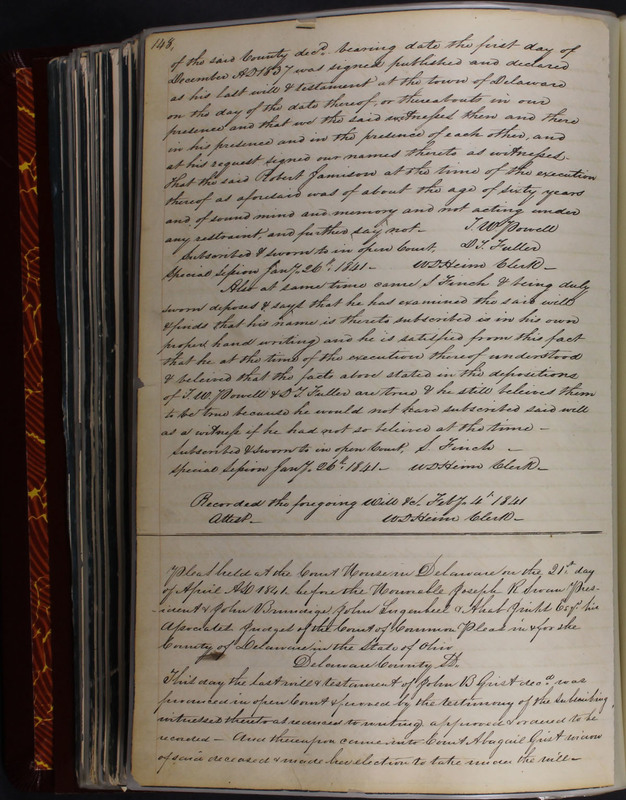 148.
of the said County decd. bearing date the first day of
December AD 1837 was signed published and declared
as his last will & testament at the town of Delaware
on the day of the date thereof, or thereabouts in our
presence and that we the said witnesses then and there
in his presence and in the presence of each other, and
at his request signed our names thereto as witnesses.
That the said Robert Jamison at the time of the execution
thereof as aforesaid was of about the age of sixty years
and of sound mind and memory and not acting under
any restraint, and further say not - T. W. Powell
Subscribed & sworn to in open Court, D. T. Fuller
Special Session Jany. 26th. 1841 - W D Heim Clerk -
Also at same time came S Finch & being duly
sworn deposes & says that he has examined the said will
& finds that his name is thereto subscribed is in his own
proper hand writing and he is satisfied from this fact
that he at the time of the execution thereof understood
& beleived that the facts above stated in the depositions
of T. W. Powell & D T. Fuller are true & he still beleives them
to be true because he would not have subscribed said will
as a witness if he had not so beleived at the time -
Subscribed & sworn to in open Court, S. Finch -
Special Session Jany. 26th. 1841 - W D Heim Clerk -
Recorded the foregoing Will &c. Feby. 4th 1841
Attest - W D Heim Clerk -
Pleas held at the Court House in Delaware on the 21st day
of April AD 1841 before the Honorable Joseph R. Swan Pres-
ident & John Brundige, John Lugenbeel & Ahab Jinks Esqs. his
Associates Judges of the Court of Common Pleas in & for the
County of Delaware in the State of Ohio
Delaware County SS.
This day the last will & testament of John B Grist decd. was
produced in open Court & proved by the testimony of the subscribing
witnesses thereto as reduced to writing approved & ordered to be
recorded - And thereupon came into Court Abagail Grist widow
of said deceased & made her election to take under the will -